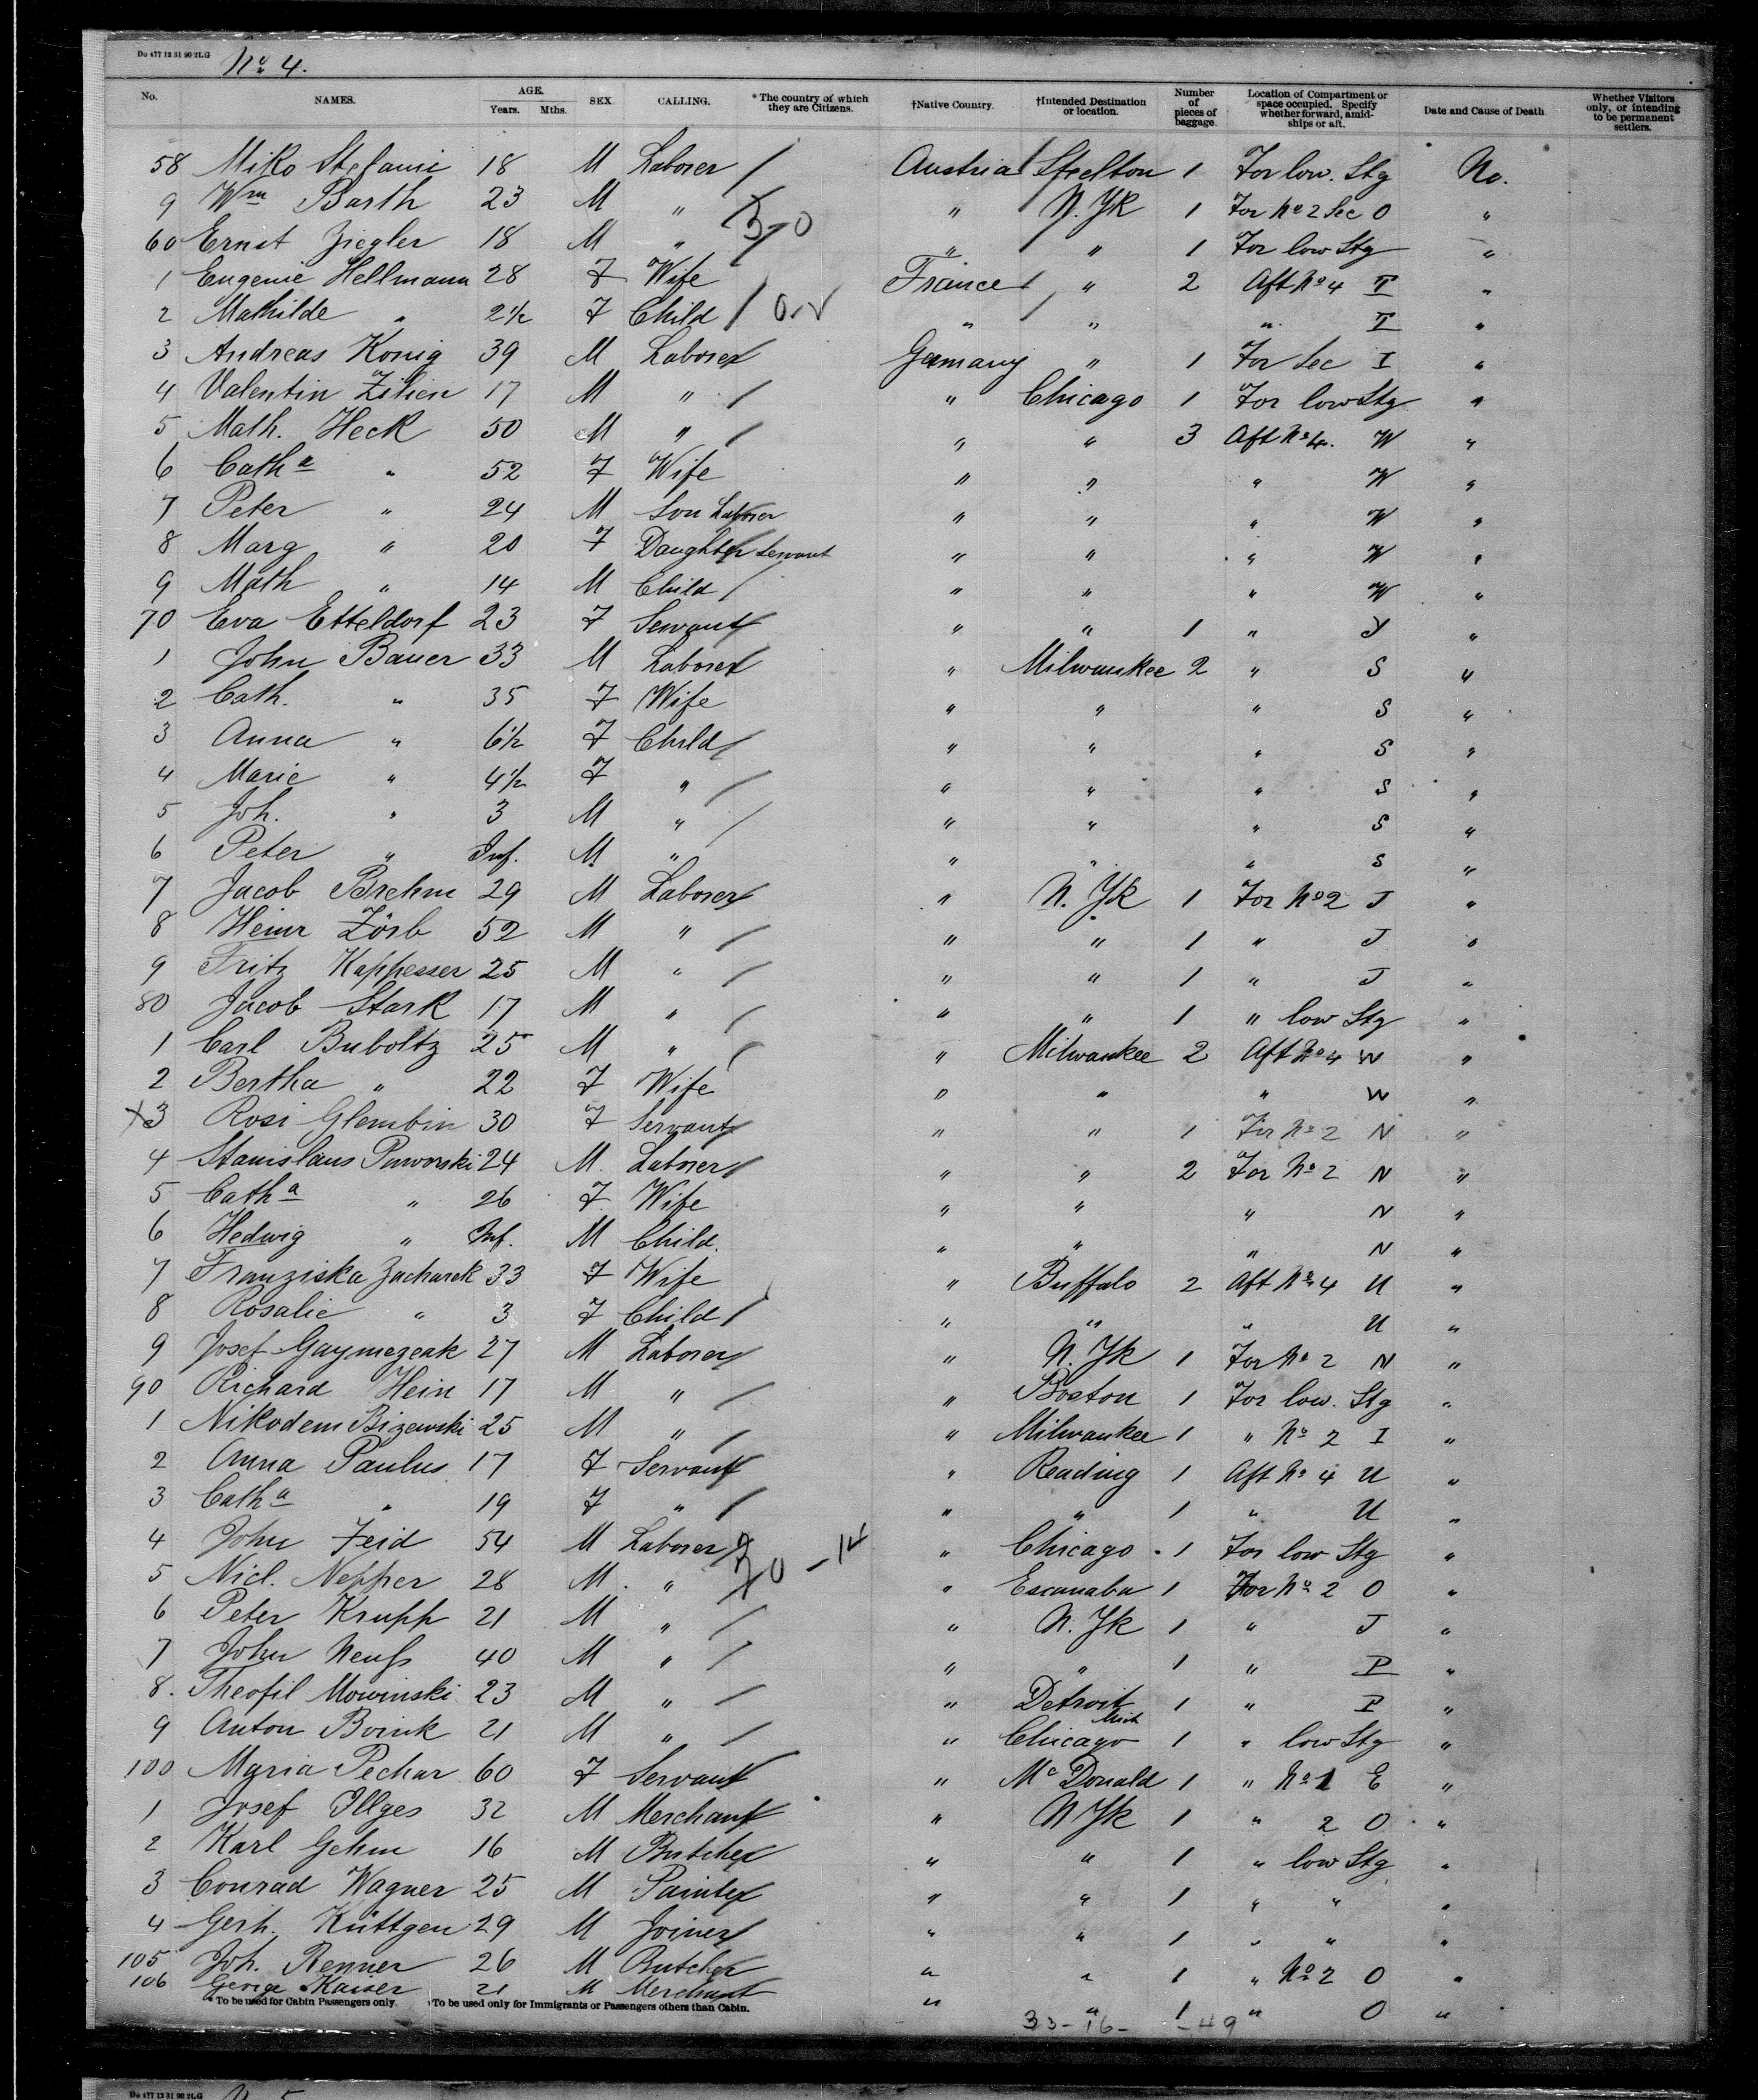 Do 477 12 31 90 2LG No 4.
No. NAMES. AGE. Years. Mths. SEX. CALLING. * The country of which they are Citizens. †Native Country. †Intended Destination or location. Number of pieces of baggage. Location of Compartment or space occupied. Specify whether forward, amidships or aft. Date and Cause of Death Whether Visitors only, or intending to be permanent settlers.
58 Miko Stefanic 18 M Laborer / Austria Steelton 1 For low. Stg No.
9 Wm Barth 23 M " " N. Yk 1 For No 2 Sec O "
60 Ernst Ziegler 18 M " " " 1 For low Stg "
1 Eugenie Hellmann 28 F Wife France " 2 Aft No 4 T "
2 Mathilde " 2½ F Child / " " " T "
3 Andreas König 39 M Laborer Germany " 1 For Sec I "
4 Valentin Zilien 17 M " / " Chicago 1 For low Stg "
5 Math. Heck 50 M " / " " 3 Aft No 4. W "
6 Catha " 52 F Wife " " " W "
7 Peter " 24 M Son Laborer " " " W "
8 Marg " 20 F Daughter Servant " " " W "
9 Math " 14 M Child / " " " W "
70 Eva Etteldorf 23 F Servant " " 1 " Y "
1 John Bauer 33 M Laborer " Milwaukee 2 " S "
2 Cath. " 35 F Wife " " " S "
3 Anna " 6½ F Child / " " " S "
4 Marie " 4½ F " / " " " S "
5 Joh. " 3 M " / " " " S "
6 Peter " Inf. M " " " " S "
7 Jacob Brehm 29 M Laborer " N. Yk 1 For No 2 J "
8 Heinr Zörb 52 M " / " " 1 " J "
9 Fritz Kappesser 25 M " / " " 1 " J "
80 Jacob Stark 17 M " / " " 1 " low Stg "
1 Carl Buboltz 25 M " / " Milwaukee 2 Aft No 4 W "
2 Bertha " 22 F Wife " " " W "
x3 Rosi Glembin 30 F Servant " " 1 For No 2 N "
4 Stanislaus Paworski 24 M. Laborer / " " 2 For No 2 N "
5 Catha " 26 F Wife " " " N "
6 Hedwig " Inf. M Child. " " " N "
7 Franziska Zacharek 33 F Wife " Buffalo 2 Aft No 4 U "
8 Rosalie " 3 F Child / " " " U "
9 Josef 27 M Laborer " N. Yk 1 For No 2 N "
90 Richard Hein 17 M " / " Boston 1 For low. Stg "
1 Nikodem Bizewski 25 M " / " Milwaukee 1 " No 2 I "
2 Anna Paulus 17 F Servant " Reading 1 Aft No 4 U "
3 Catha " 19 F " / " " 1 " U "
4 John Feid 54 M Laborer " Chicago 1 For low Stg "
5 Nicl. Nepper 28 M. " " Escanaba 1 For No 2 O "
6 Peter Krupp 21 M " / " N. Yk 1 " J "
7 John Neuss 40 M " / " " 1 " P "
8. Theofil Mowinski 23 M " / " Detroit Mich 1 " P "
9 Anton Brink 21 M " / " Chicago 1 " low Stg "
100 Maria Pechar 60 F Servant " Mc Donald 1 " No 1 E "
1 Josef Illges 32 M Merchant " N Yk 1 " 2 O "
2 Karl Gehm 16 M Butcher " " 1 " low Stg "
3 Conrad Wagner 25 M Painter " " 1 " " "
4 Gerh. Küttgen 29 M Joiner " " 1 " " "
105 Joh. Renner 26 M Butcher " " 1 " No 2 O "
106 George Kaiser 21 M Merchant " " 1 " O "
* To be used for Cabin Passengers only. †To be used only for Immigrants or Passengers others than Cabin.
33 - 16 - - 49
Do 477 12 31 90 2LG